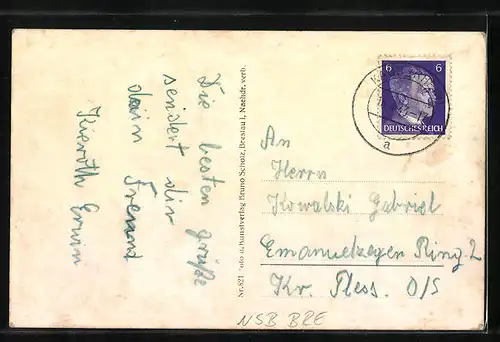 Die besten grüße
sendert dir
dein Freund
Nr. 821 Foto u. Kunstverlag Bruno Scholz, Breslau 1, Nachdr. verb.
6 6
DEUTSCHES REICH
a
An
Herrn
Kowalski Gabriel
Emanuelzegen Ring 2
Kr. Pless. O/S
NSB BRE